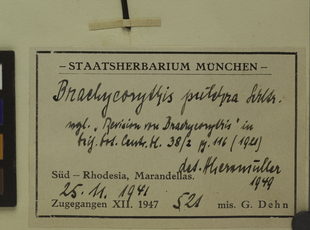 – STAATSHERBARIUM MÜNCHEN –
Brachycorythis
vgl. „Revision von Brachycorythis" in
Beih. Bot. Centr. bl. 38/2 p. 116 (1921)
det.
1949
Süd – Rhodesia, Marandellas.
25. 11. 1941
Zugegangen XII. 1947 521 mis. G. Dehn